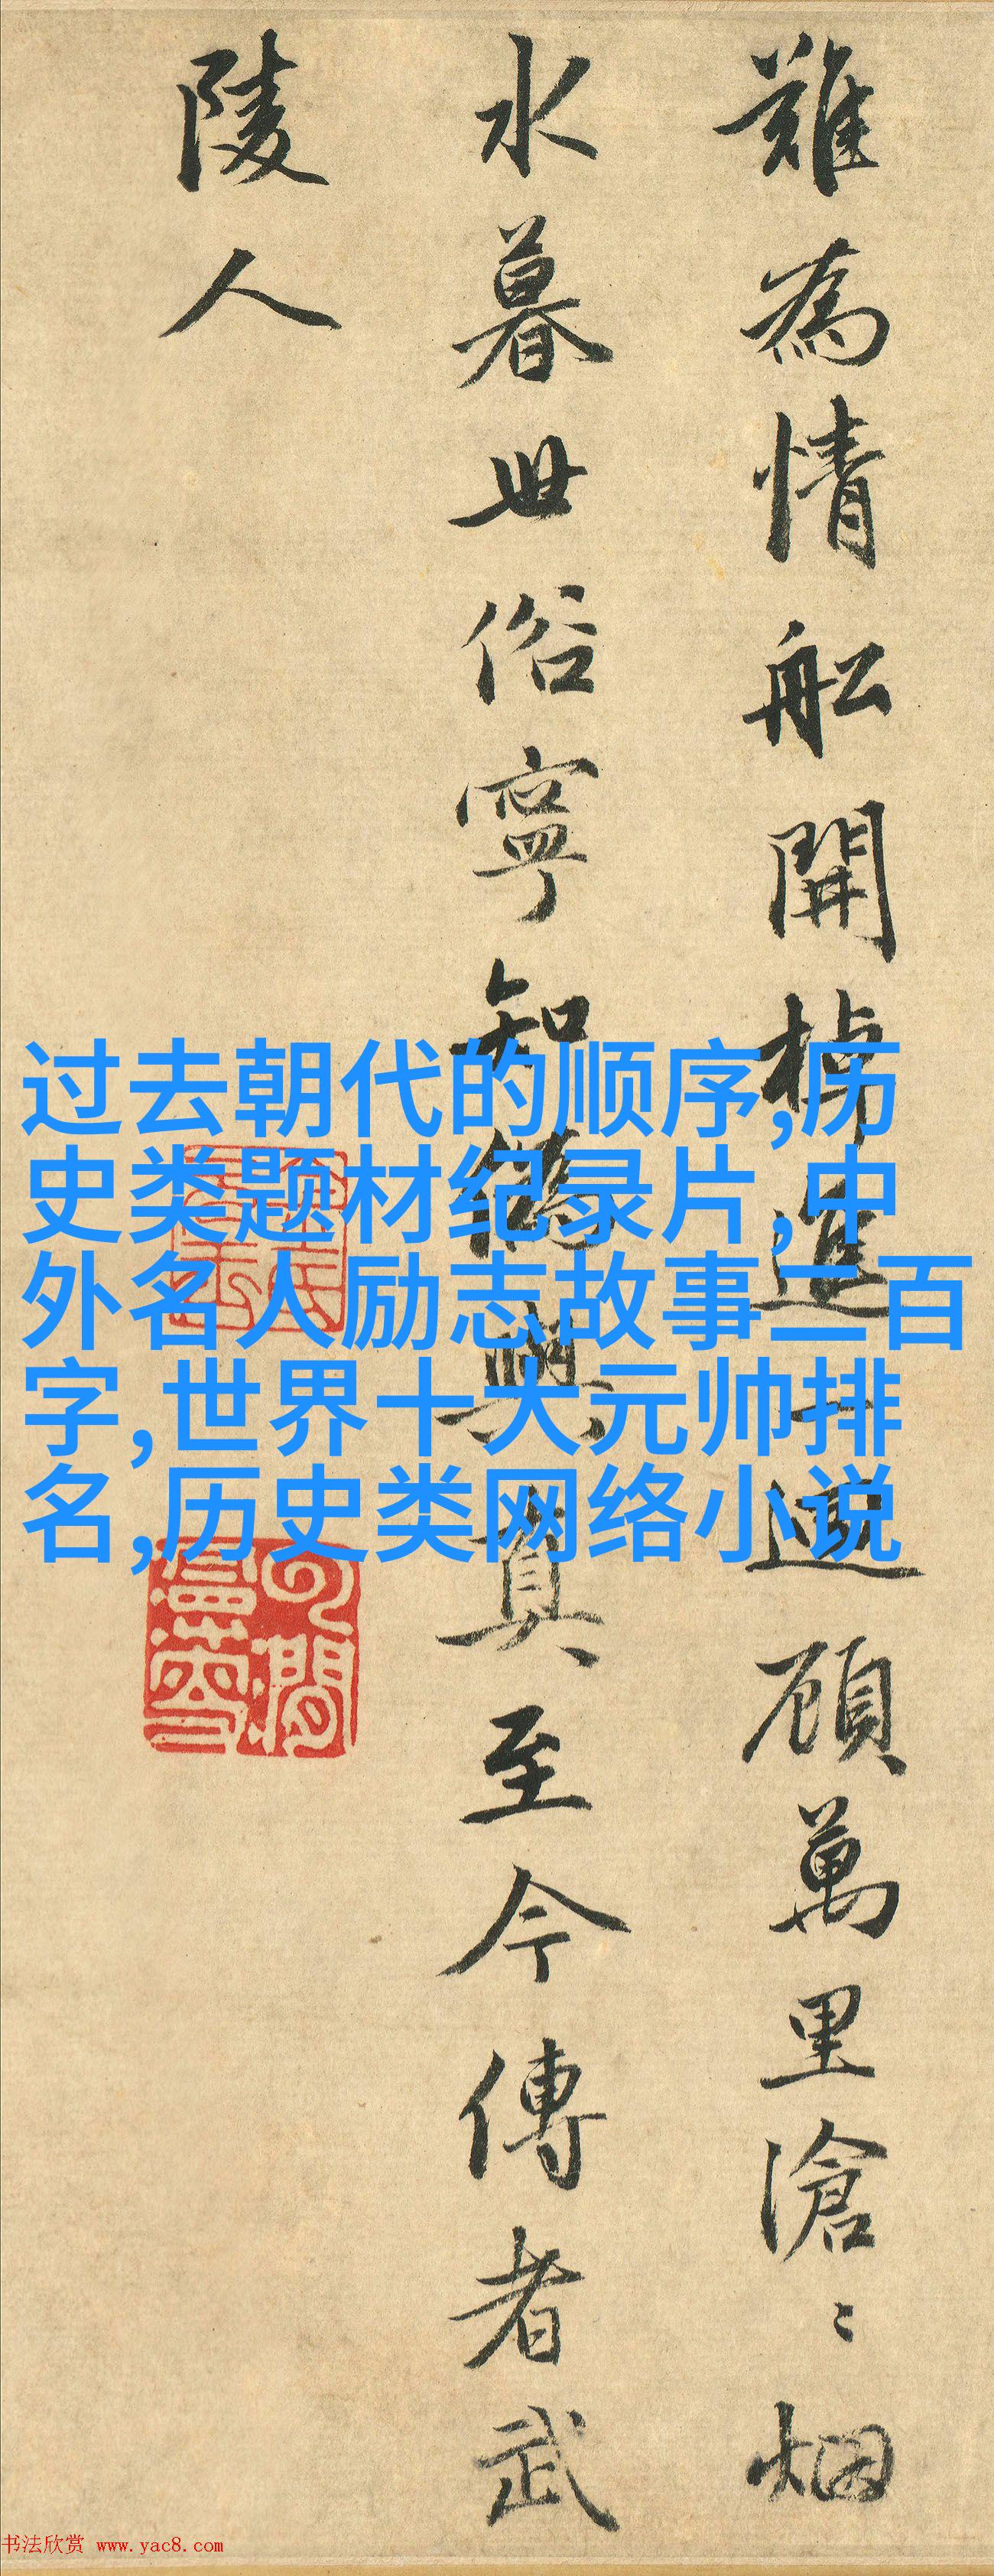 難為情舩開棹進一迴顧萬里滄〻烟
水暮世俗寧知偽與真至今傳者武
陵人
过去朝代的顺序,历
史类题材纪录片,中
外名人励志故事二百
字,世界十大元帅排
名,历史类网络小说
书法欣赏 www.yac8.com